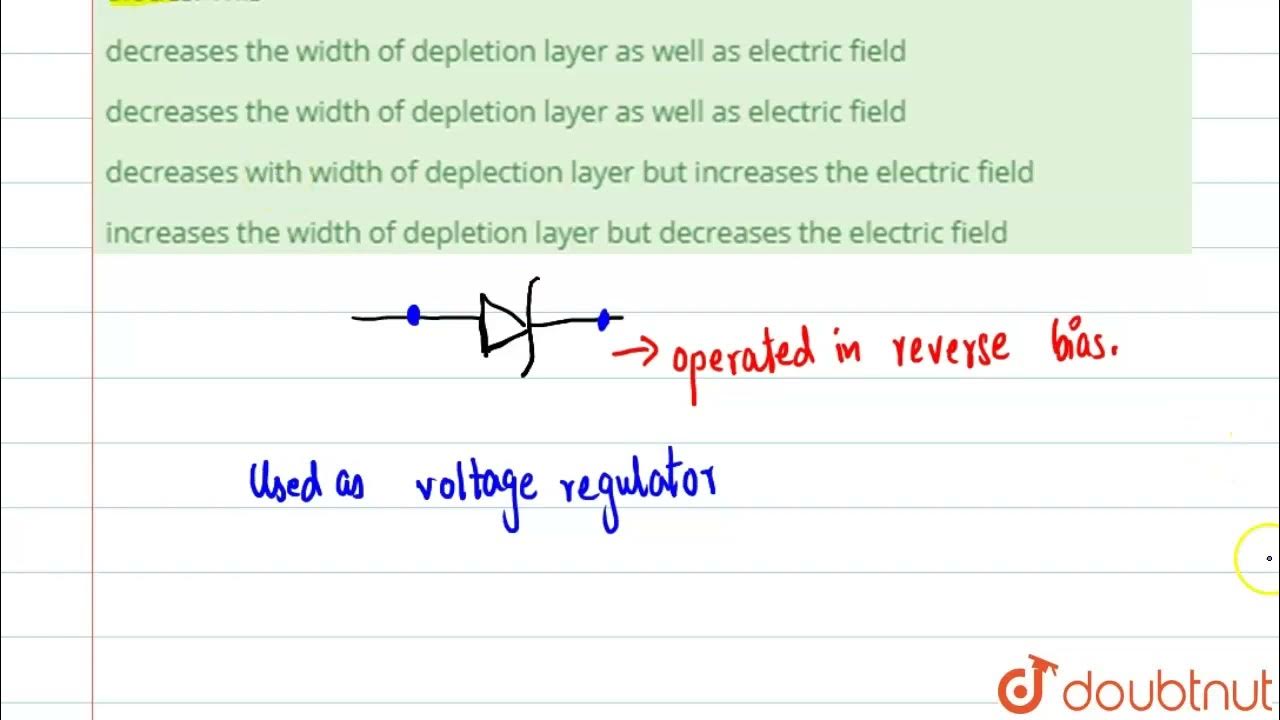 decreases the width of depletion layer as well as electric field
decreases the width of depletion layer as well as electric field
decreases with width of deplection layer but increases the electric field
increases the width of depletion layer but decreases the electric field
→ operated in reverse bias.
Used as voltage regulator
doubtnut